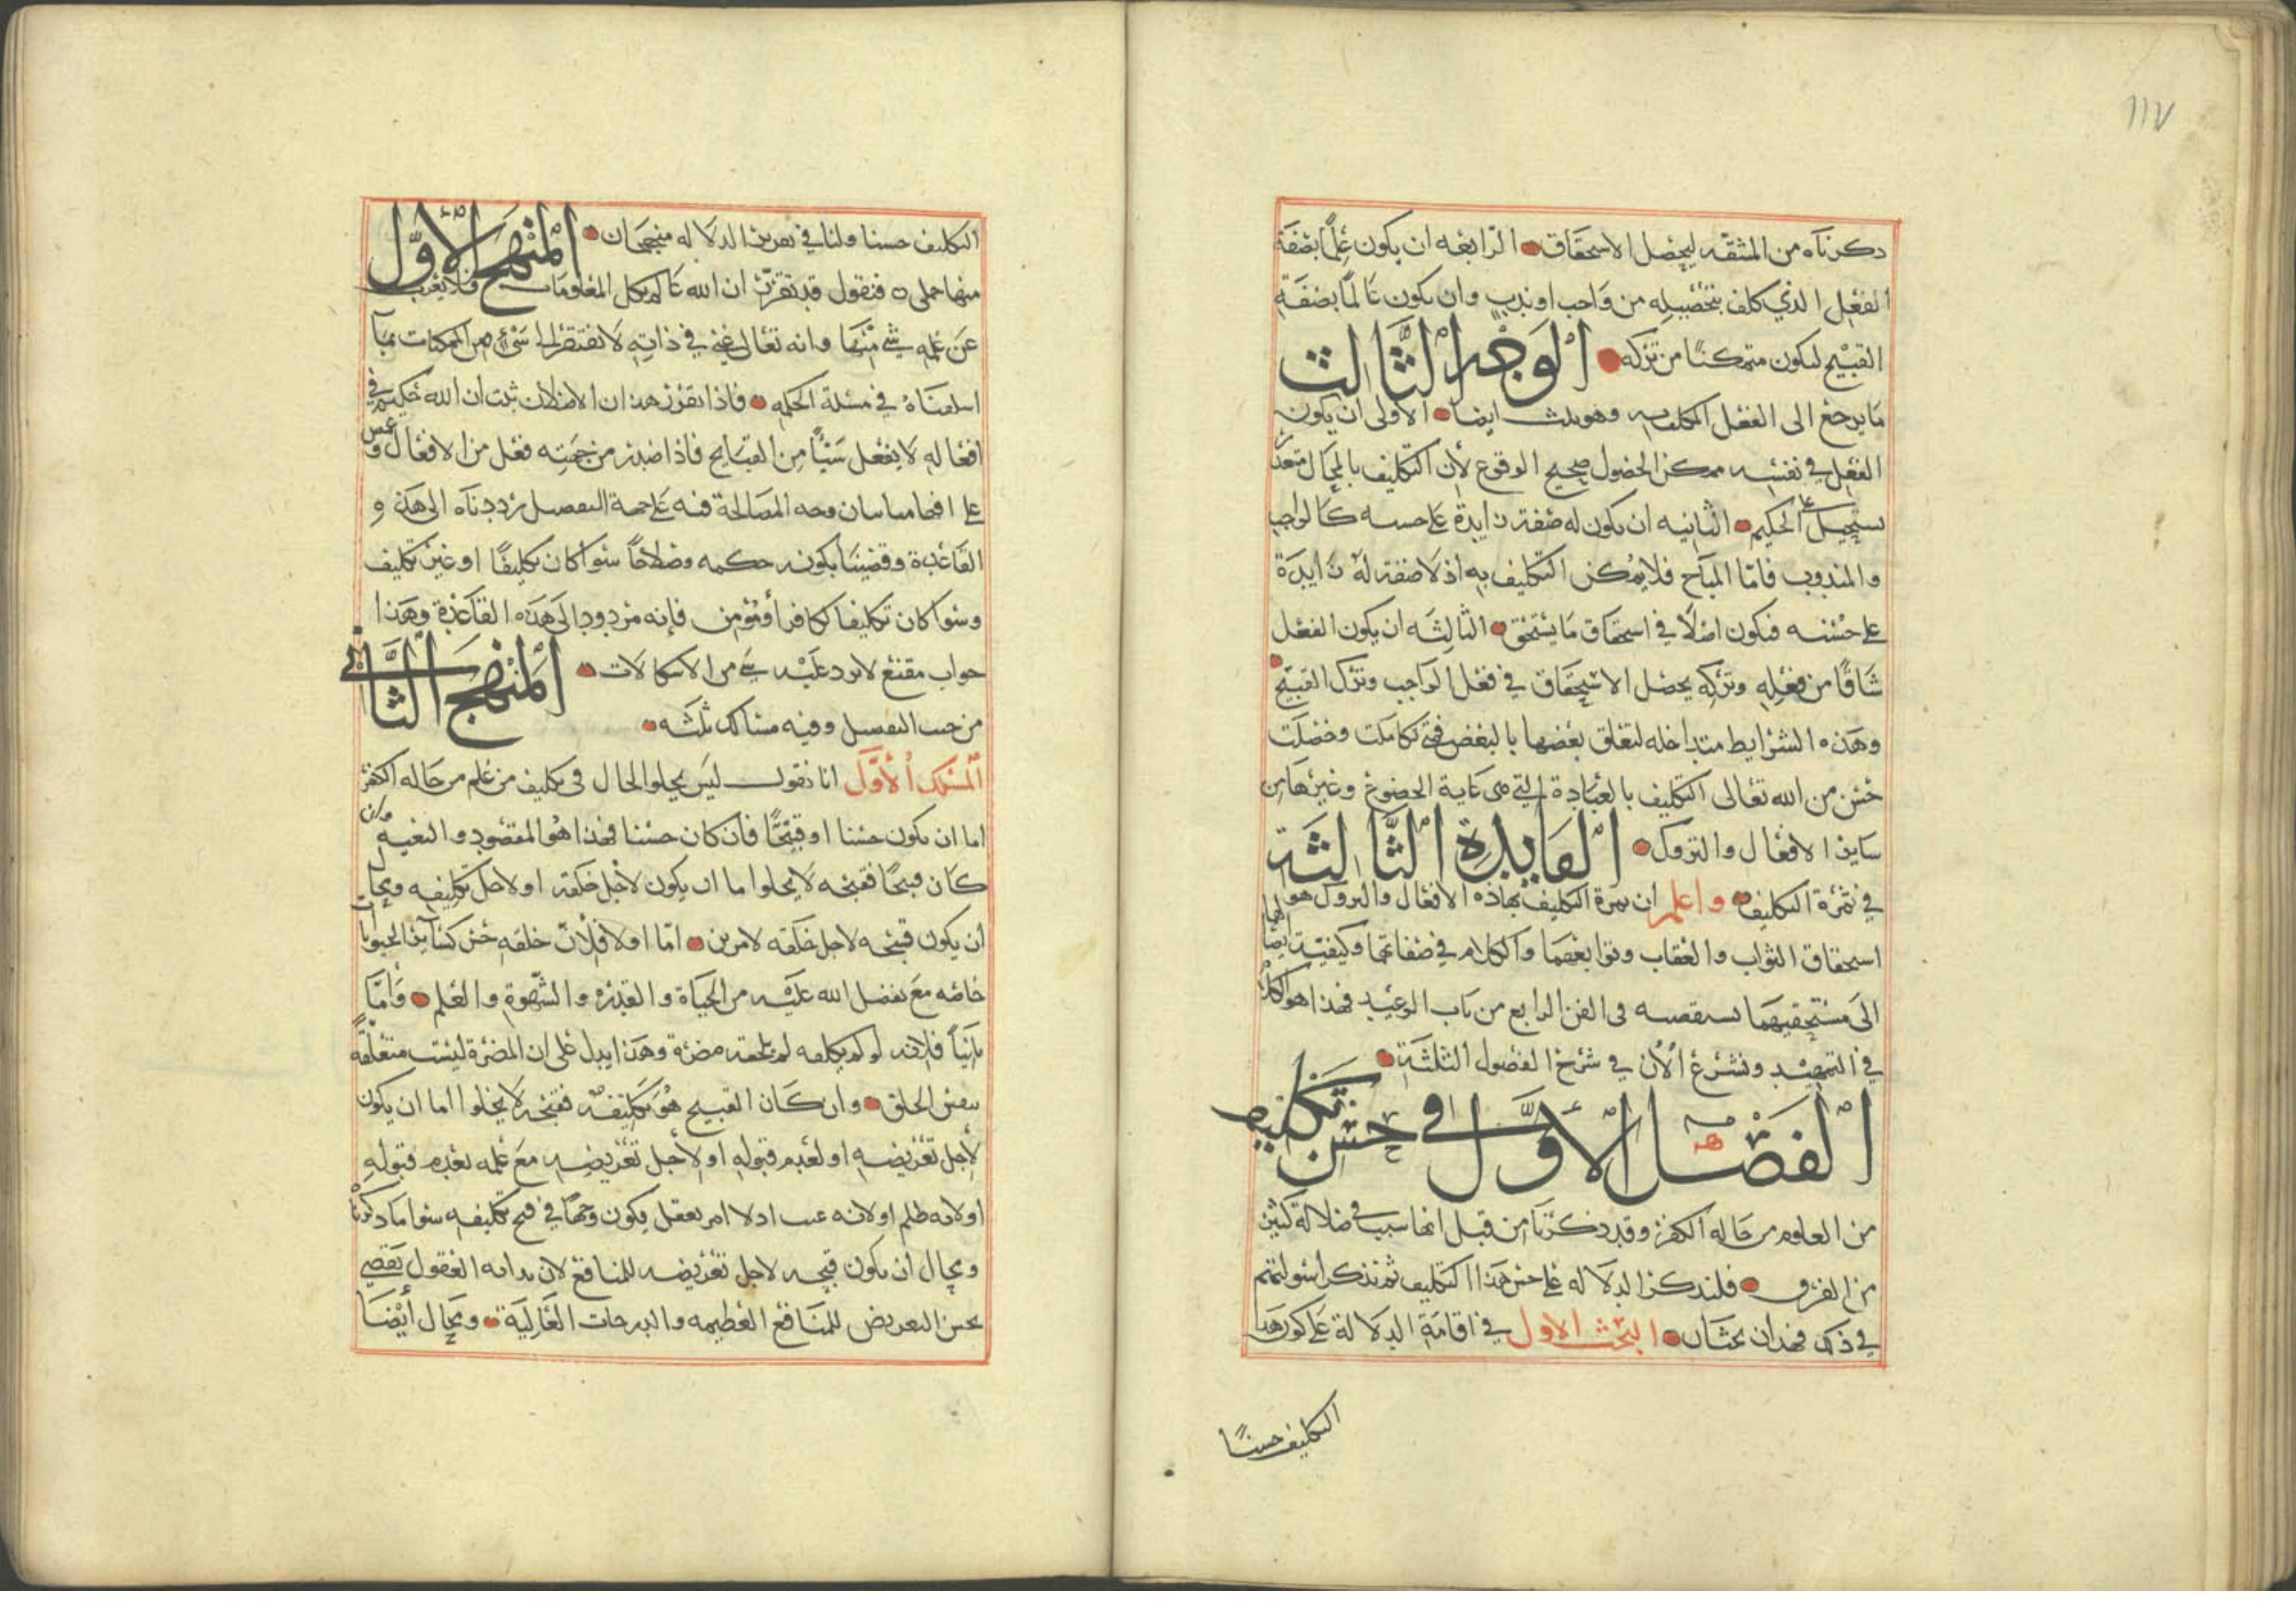 ١١٧
دكرناه من المشقه ليحصل الاستحقاق الرابعه ان يكون عالمًا بصفة
الفعل الذي كلف بتحصيله من واجب او ندب وان يكون عالمًا بصفة
القبيح لىكون متمكنًا من تركه الوجه الثالث
ما يرجع الى الفعل المكلف به وهو ىلث ايضا الاولى ان يكون
الفعل في نفسه ممكن الحصول صحيح الوقوع لأن التكليف بالمحال متعذر
ىستحيل على الحكيم الثانيه ان ىكون له صفة زايدة على حسنه كالواجب
والمندوب فامّا المباح فلا يمكن التكليف به اذ لا صفة له زايدة
على حسنه فىكون اصلًا في استحقاق ما يستحق الثالثه ان يكون الفعل
شاقًا من فعله وتركه يحصل الاستحقاق في فعل الواجب وترك القبيح
وهذه الشرايط متداخله لتعلق بعضها بالبعض فمتى تكاملت وحصلت
حسن من الله تعالى التكليف بالعبادة التي هي غاية الخضوع وغيرها من
ساير الافعال والتروك الفايدة الثالثة
في ثمرة التكليف واعلم ان ثمرة التكليف بهاذه الافعال والتروك هو
استحقاق الثواب والعقاب وتوابعهما والكلام في صفاتها وكيفية ايصالها
الى مستحقيهما نستقصيه فى الفن الرابع من باب الوعيد فهذا هو الكلام
في التمهيد ونشرع الأن في شرح الفصول الثلثة
الفصل الأوّل في حسن تكليف
من المعلوم من حاله الكفر وقد ذكرنا من قبل انها سبب في ضلالة كثير
من الفرق فلنذكر الدلاله على حسن هذا التكليف ثم نذكر اسولتهم
في ذلك فهذان بحثان البحث الاول في اقامة الدلالة على كون هذا
التكليف حسنًا
التكليف حسنا ولنا في تقرير الدلاله منهجان المنهج الأوّل
منها جملي فنقول قد تقرّر ان الله عالم بكل المعلومات فلا يعزب
عن علمه شي منها وانه تعالى غني في ذاته لا تفتقر الى شيء من الممكنات بما
اسلفناه في مسئلة الحكمه فاذا تقرر هذان الاصلان ثبت ان الله حكيم في
افعاله لا يفعل شيأً من القبايح فاذا صدر من جهته فعل من الافعال و
على افهامنا بيان وجه المصالحة فيه على جهة التفصيل رددناه الى هذه
القاعدة وقضينا بكونه حكمه وصلاحًا سوا كان تكليفًا او غير تكليف
وسوا كان تكليفا لكافر أو مؤمن فإنه مردود الى هذه القاعدة وهذا
جواب مقنع لا يرد عليه شي من الاشكالات المنهج الثاني
من حيث التفصيل وفيه مسالك ثلثه
المسلك الأوّل انا نقول ليس يخلوا الحال في تكليف من علم من حاله الكفر
اما ان يكون حسنا او قبيحًا فأن كان حسنا فهذا هو المقصود والبغيه وان
كان قبيحًا فقبحه لا يخلوا اما ان يكون لأجل خلقه او لاجل تكليفه ومحال
ان يكون قبحه لاجل خلقه لامرين امّا اولا فلأن خلقه حسن كساير الحيوانات
خاصه مع تفضل الله عليه من الحياة والقدره والشهوة والعلم وأمّا
ثانيًا فلانه لو لم يكلفه لم تلحقه مضرة وهذا يدل على ان المضرة ليست متعلقة
بنفس الخلق وان كان القبيح هو تكليفه فقبحه لا يخلوا اما ان يكون
لأجل تعريضه او لعدم قبوله او لأجل تعريضه مع علمه بعدم قبوله
او لانه ظلم او لانه عبث اذ لا امر يعقل يكون وجهًا في قبح تكليفه سوا ما ذكرنا
ومحال ان يكون قبحه لاجل تعريضه للمنافع لان بداىه العقول تقضي
بحسن التعريض للمنافع العظيمه والدرجات العالية ومحال أيضا